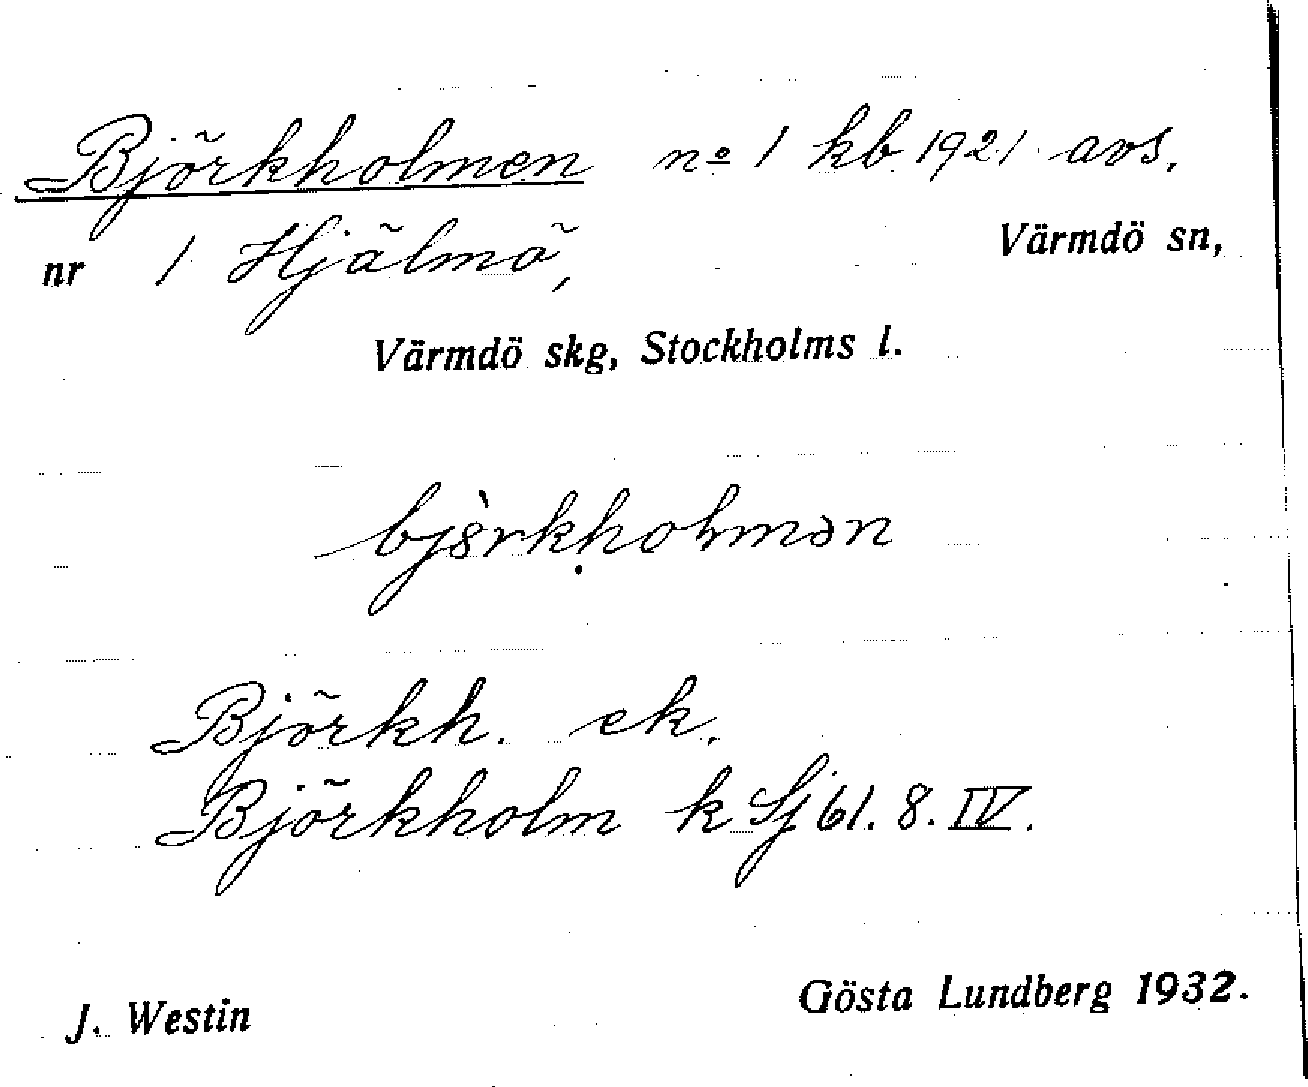 Björkholmen nº 1 kb. 1921 avs.
nr 1 Hjälmö, Värmdö sn,
Värmdö skg, Stockholms l.
bjòrkholmən
Björkh. ek.
Björkholm k Sj 61. 8. IV.
J. Westin Gösta Lundberg 1932.